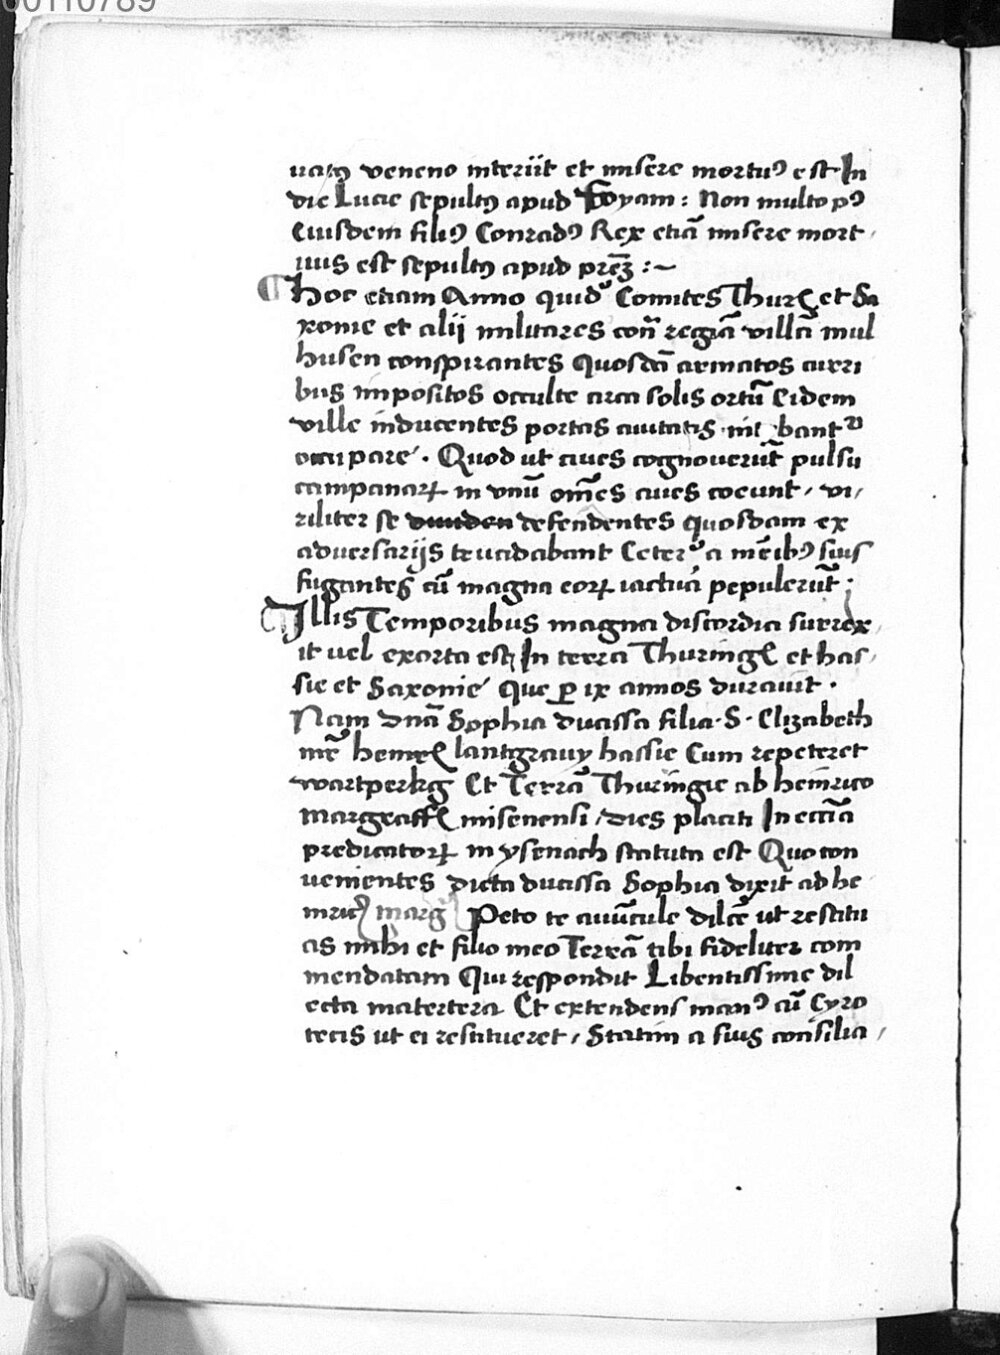 00110789
uatꝰ veneno interiit et misere mortuꝰ est In
die Lucie sepultꝰ apud Foyam : Non multo pꝰ
Eiusdem filiꝰ Conradꝰ Rex etiā misere mort
uus est sepultꝰ apud
hoc etiam Anno quidā Comites Thurꝭ et Sa
xonie et alij militares cont̄ regiā villā mul
husen conspirantes Quosdā armatos curri
bus impositos occulte circa solis ortū Eidem
ville inducentes portas ciuitatis bantᷣ
occupare . Quod ut ciues cognouerūt pulsu
campanaꝝ in vnū om̄es ciues coeunt / vi /
riliter se defendentes quosdam ex
adversarijs teucidabant Ceterꝰ a mēibꝰ suis
fugantes cū magna eoꝝ iactura pepulerūt .
Illis Temporibus magna discordia surrex
it uel exorta est In terra Thuringꝭ et has /
sie et Saxonie Que ꝑ ix annos durauit .
Nam dnā Sophia ducissa filia S . Elizabeth
mr̄ heinrꝭ lantgrauij hassie Cum repeteret
wartperkg Et Terrā Thuringie ab heinrico
Margraffꝭ misenensi / dies placiti In ecciā
predicatoꝝ in ysenach statuta est Quo con
uenientes dicta ducissa Sophia dixit ad he
inricū marg Peto te auūcule dilcē ut restitu
as mihi et filio meo Terrā tibi fideliter com
mendatam Qui respondit Libentissime dil
ecta matertera Et extendens manꝰ cū Cyro
tecis ut ei restitueret / Statim a suis consilia /